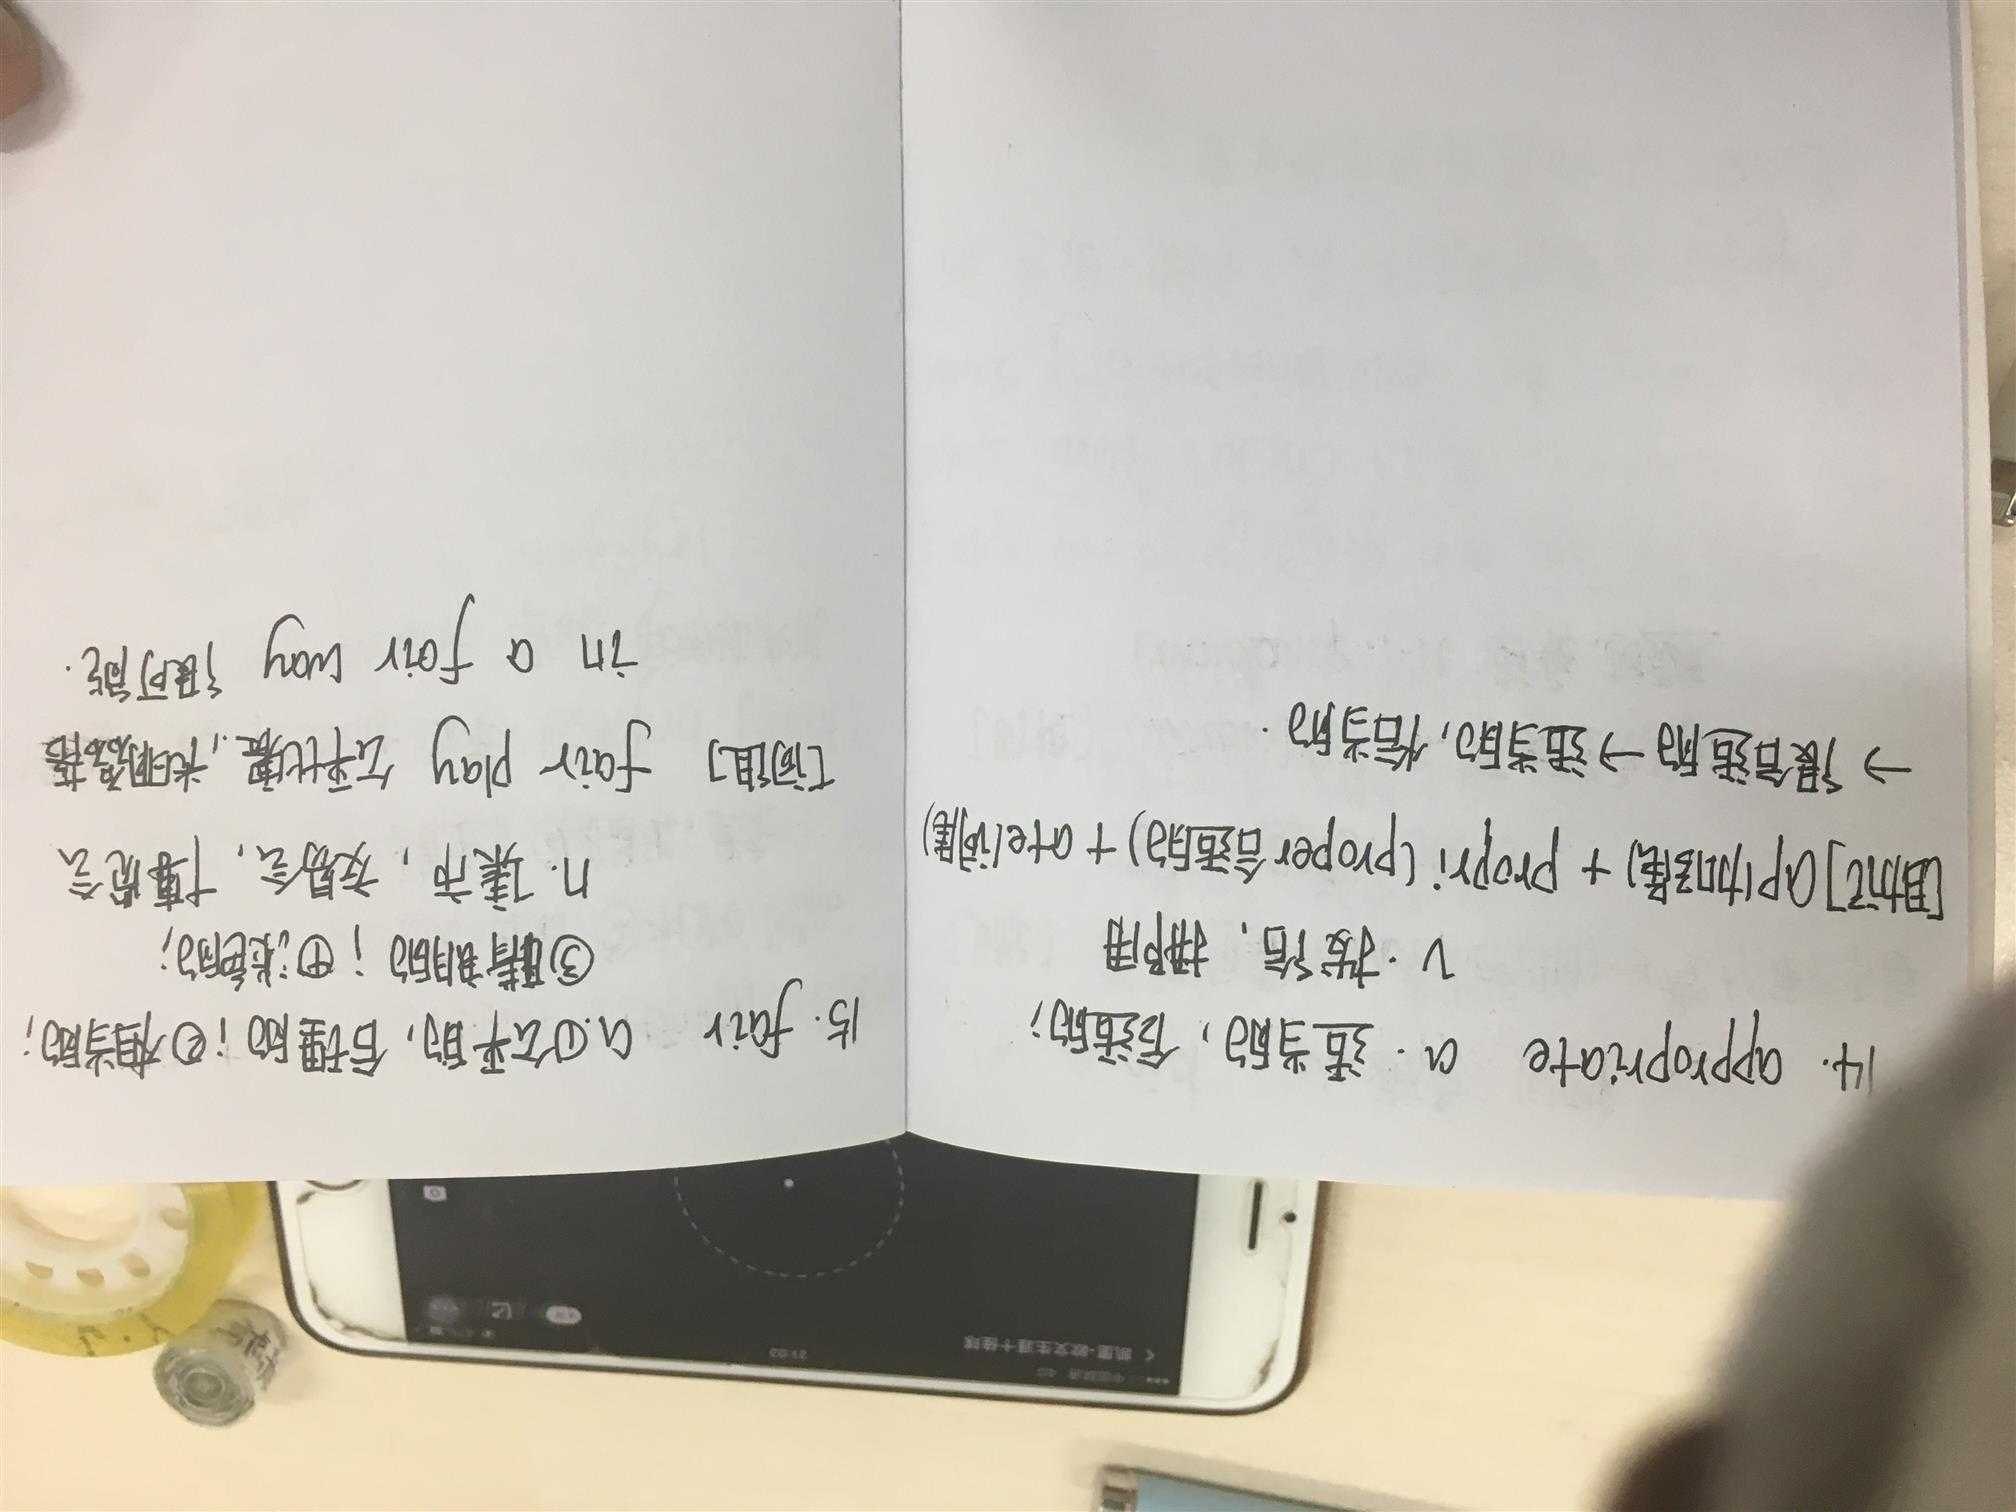 14. appropriate a. 适当的, 合适的;
v. 拨给, 挪用
[助记] ap(加强) + propri (proper 合适的) + ate(词尾)
→ 很合适的 → 适当的, 恰当的.
15. fair a.①公平的, 合理的; ②相当的;
③晴朗的; ④浅色的;
n. 集市, 交易会, 博览会
[词组] fair play 公平比赛,
in a fair way 很可能.
21:03
凯里-欧文生涯十佳球